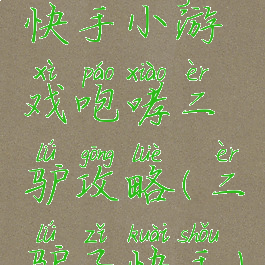 快手小游
xì páo xiào èr
戏咆哮二
lǘ gōng lüè èr
驴攻略(二
lǘ zǐ kuài shǒu
驴子快手)